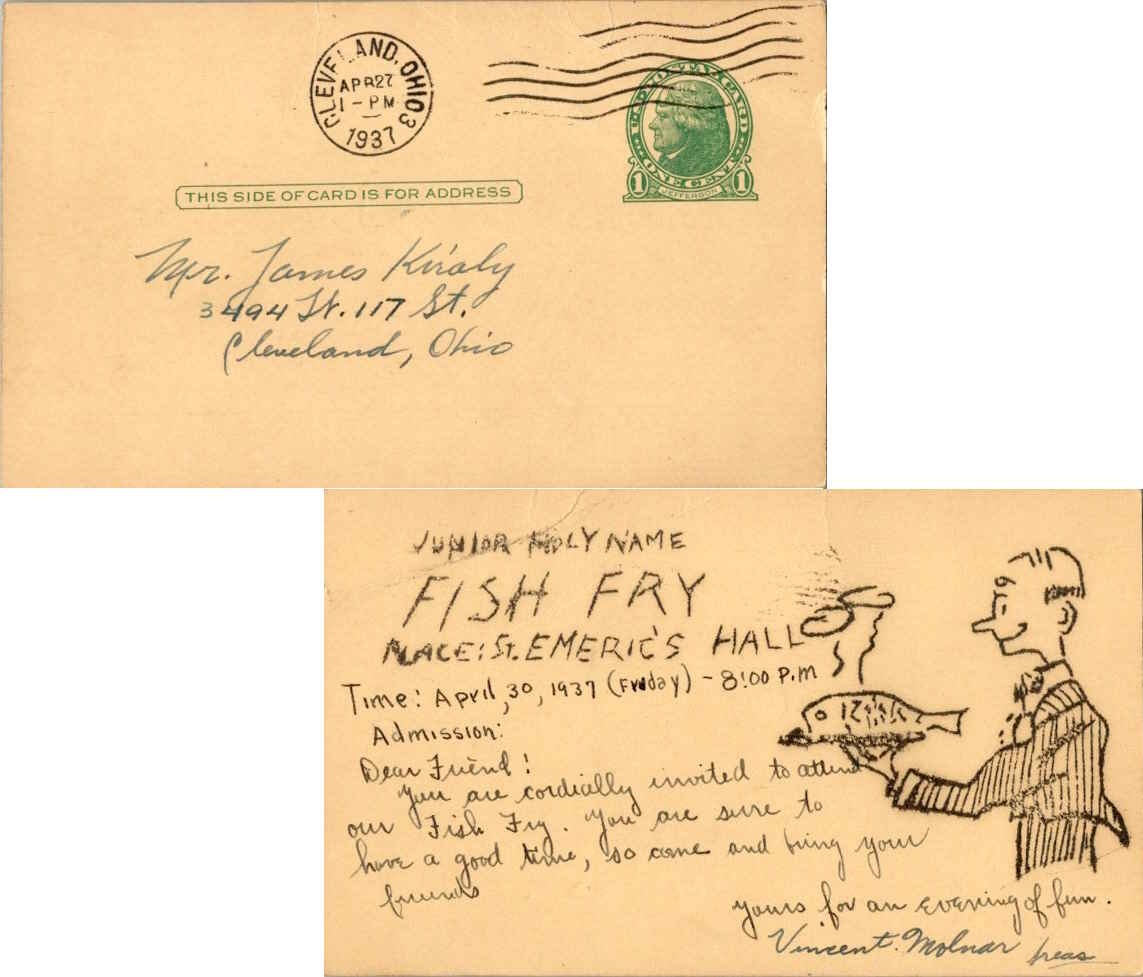 CLEVELAND, OHIO 3
APR 27
1 - PM
1937
UNITED STATES POSTAGE
1 JEFFERSON 1
THIS SIDE OF CARD IS FOR ADDRESS
Mr. James Kiraly
3494 W. 117 St.
Cleveland, Ohio
JUNIOR HOLY NAME
FISH FRY
PLACE: St. EMERIC'S HALL
Time: April, 30, 1937 (Friday) - 8:00 P.M
Admission:
Dear Friend!
You are cordially invited to attend
our Fish Fry. You are sure to
have a good time, so come and bring your
friends
yours for an evening of fun.
Vincent. Molnar